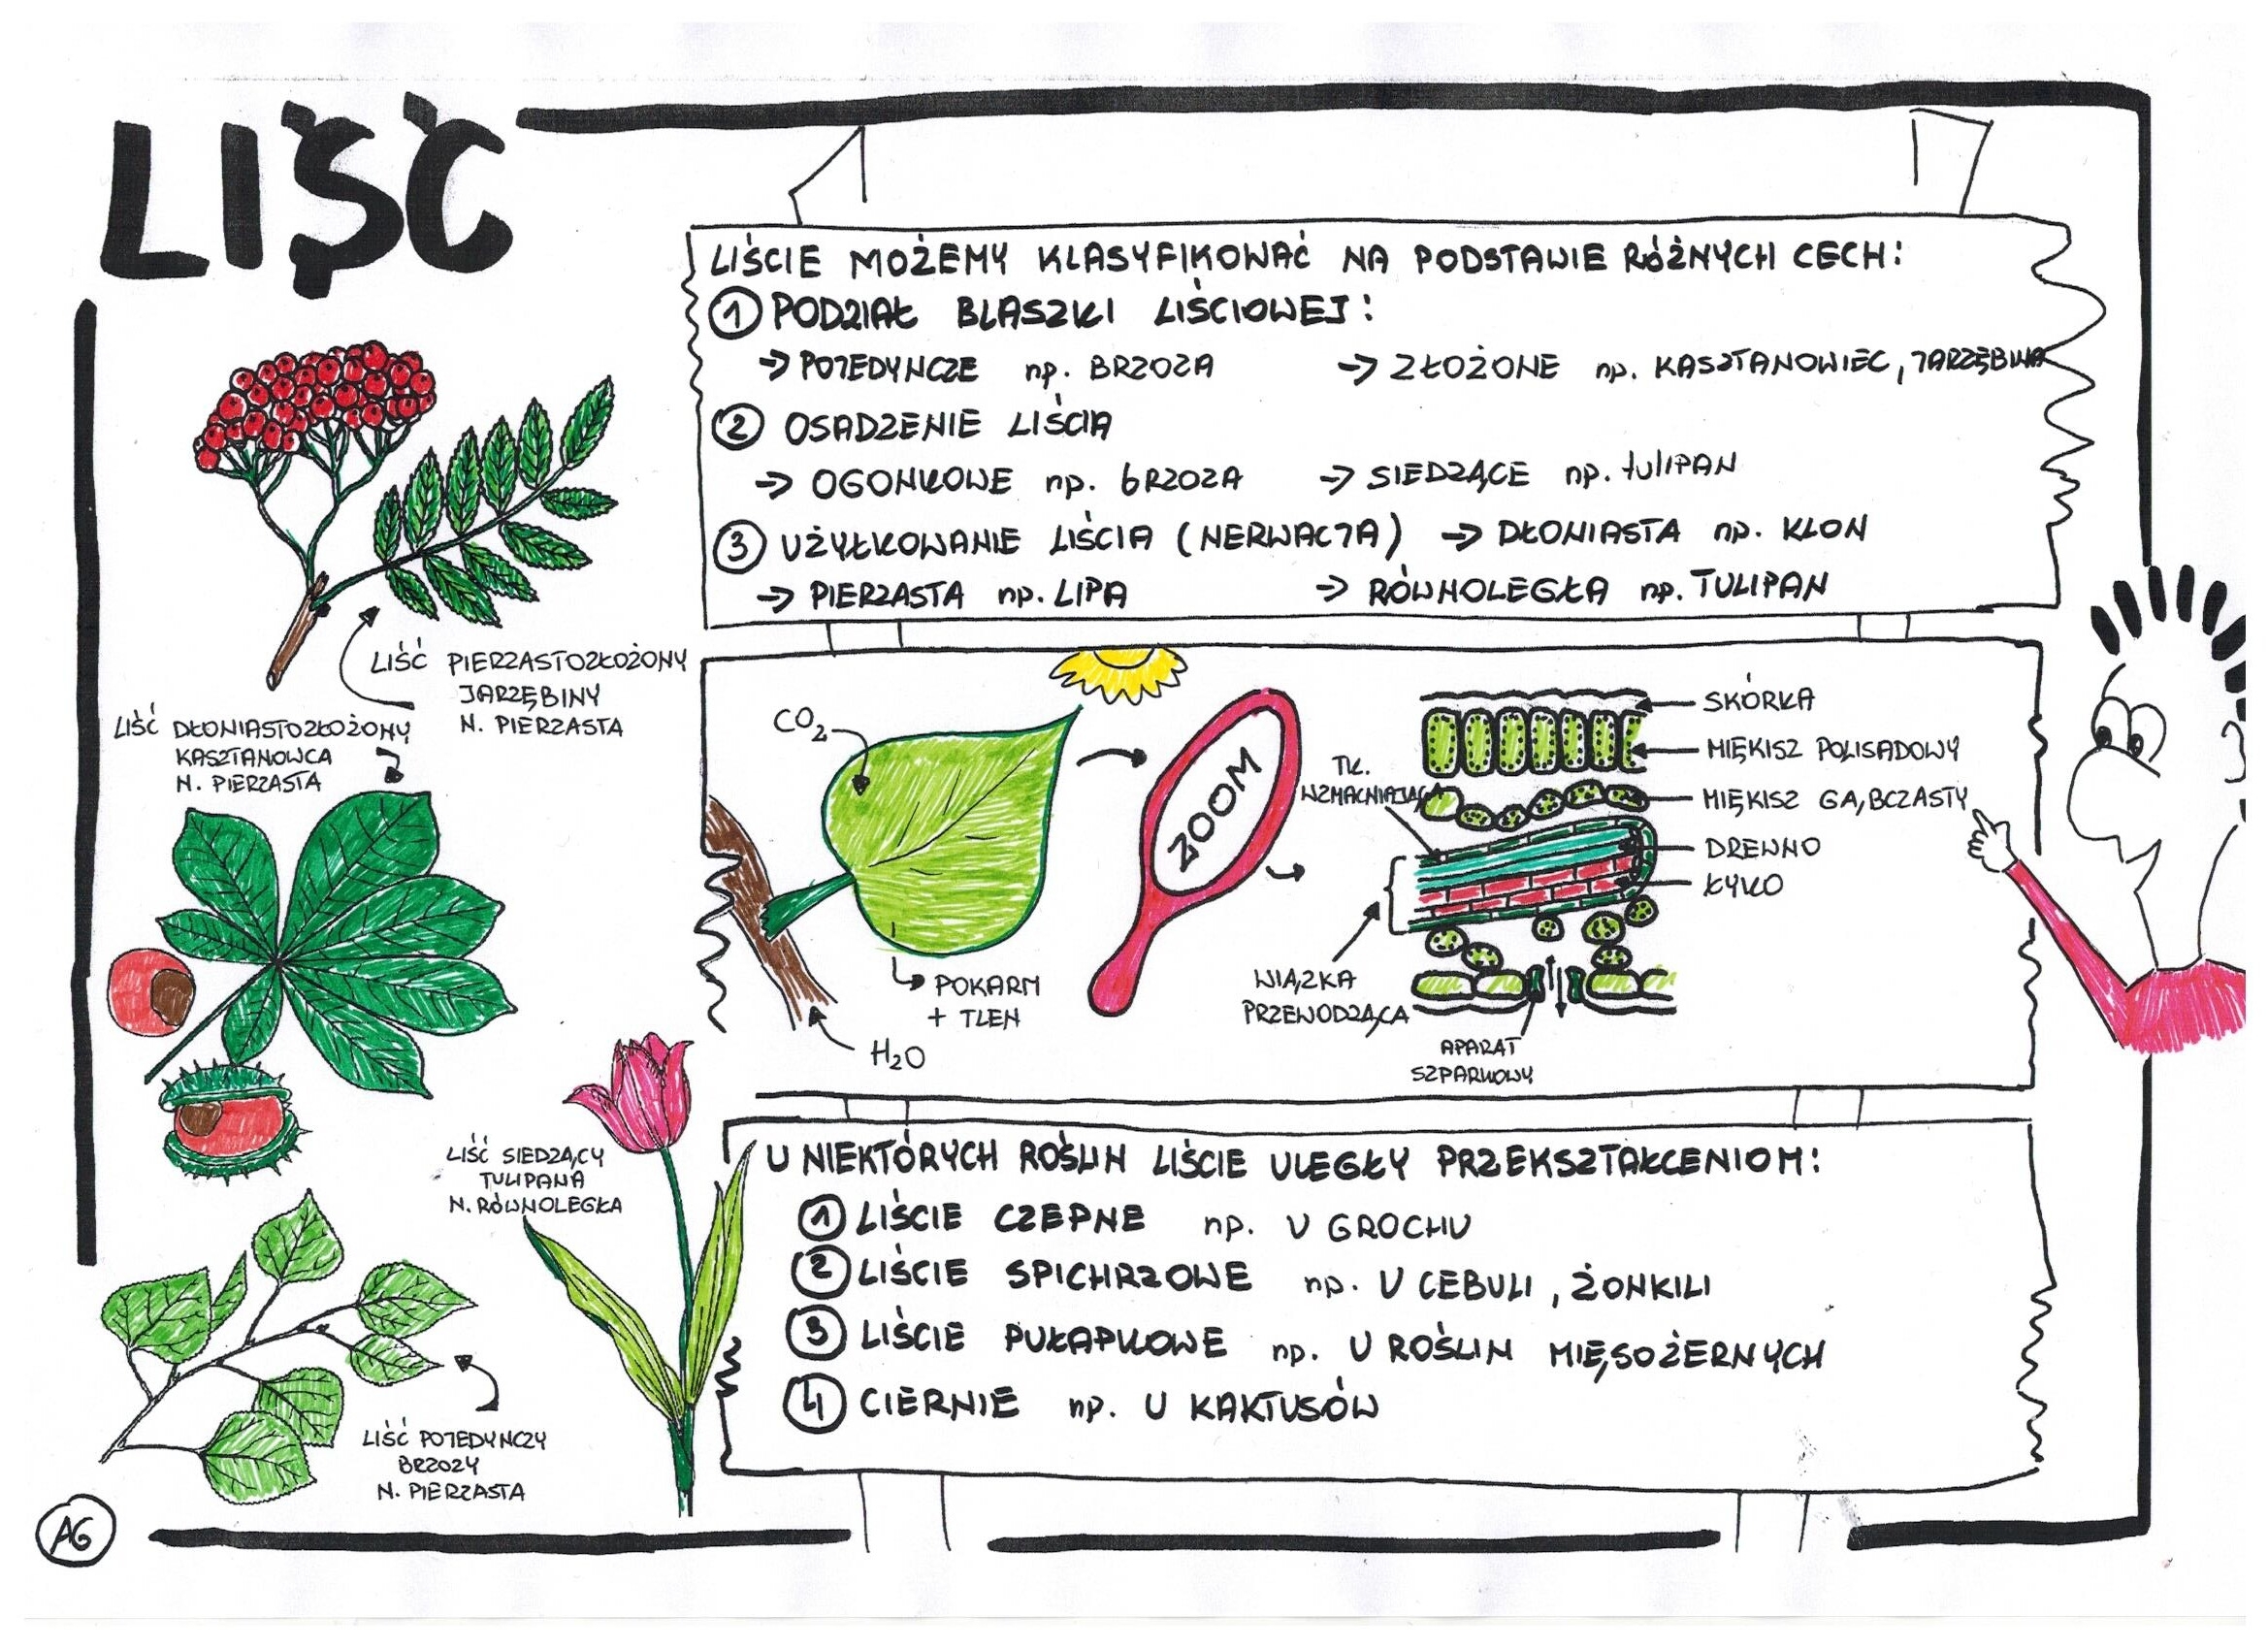 LIŚĆ
LIŚCIE MOŻEMY KLASYFIKOWAĆ NA PODSTAWIE RÓŻNYCH CECH:
1 PODZIAŁ BLASZKI LIŚCIOWEJ:
→ POJEDYNCZE np. BRZOZA → ZŁOŻONE np. KASZTANOWIEC, JARZĘBINA
2 OSADZENIE LIŚCIA
→ OGONKOWE np. bRZOZA → SIEDZĄCE np. tulIPAN
3 UŻYŁKOWANIE LIŚCIA (NERWACJA) → DŁONIASTA np. KLON
→ PIERZASTA np. LIPA → RÓWNOLEGŁA np. TULIPAN
LIŚĆ PIERZASTOZŁOŻONY
JARZĘBINY
N. PIERZASTA
LIŚĆ DŁONIASTOZŁOŻONY
KASZTANOWCA
N. PIERZASTA
CO2
POKARM
+ TLEN
H2O
ZOOM
SKÓRKA
MIĘKISZ POLISADOWY
TK.
WZMACNIAJĄCA
MIĘKISZ GĄBCZASTY
DREWNO
ŁYKO
WIĄZKA
PRZEWODZĄCA
APARAT
SZPARKOWY
LIŚĆ SIEDZĄCY
TULIPANA
N. RÓWNOLEGŁA
U NIEKTÓRYCH ROŚLIN LIŚCIE ULEGŁY PRZEKSZTAŁCENIOM:
1 LIŚCIE CZEPNE np. U GROCHU
2 LIŚCIE SPICHRZOWE np. U CEBULI, ŻONKILI
3 LIŚCIE PUŁAPKOWE np. U ROŚLIN MIĘSOŻERNYCH
4 CIERNIE np. U KAKTUSÓW
LIŚĆ POJEDYNCZY
BRZOZY
N. PIERZASTA
AG